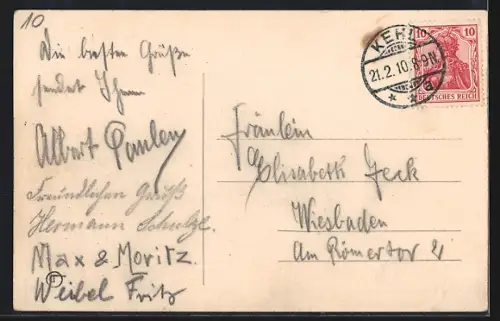 10
Die besten Grüße
sendet Ihnen
Albert Pauley
Freundlichen Gruß
Hermann Schulze.
Max & Moritz
Weibel Fritz
KEHL
21.2.10.8-9N.
10 10
DEUTSCHES REICH
Fräulein
Elisabeth Jeck
Wiesbaden
Am Römertor 2